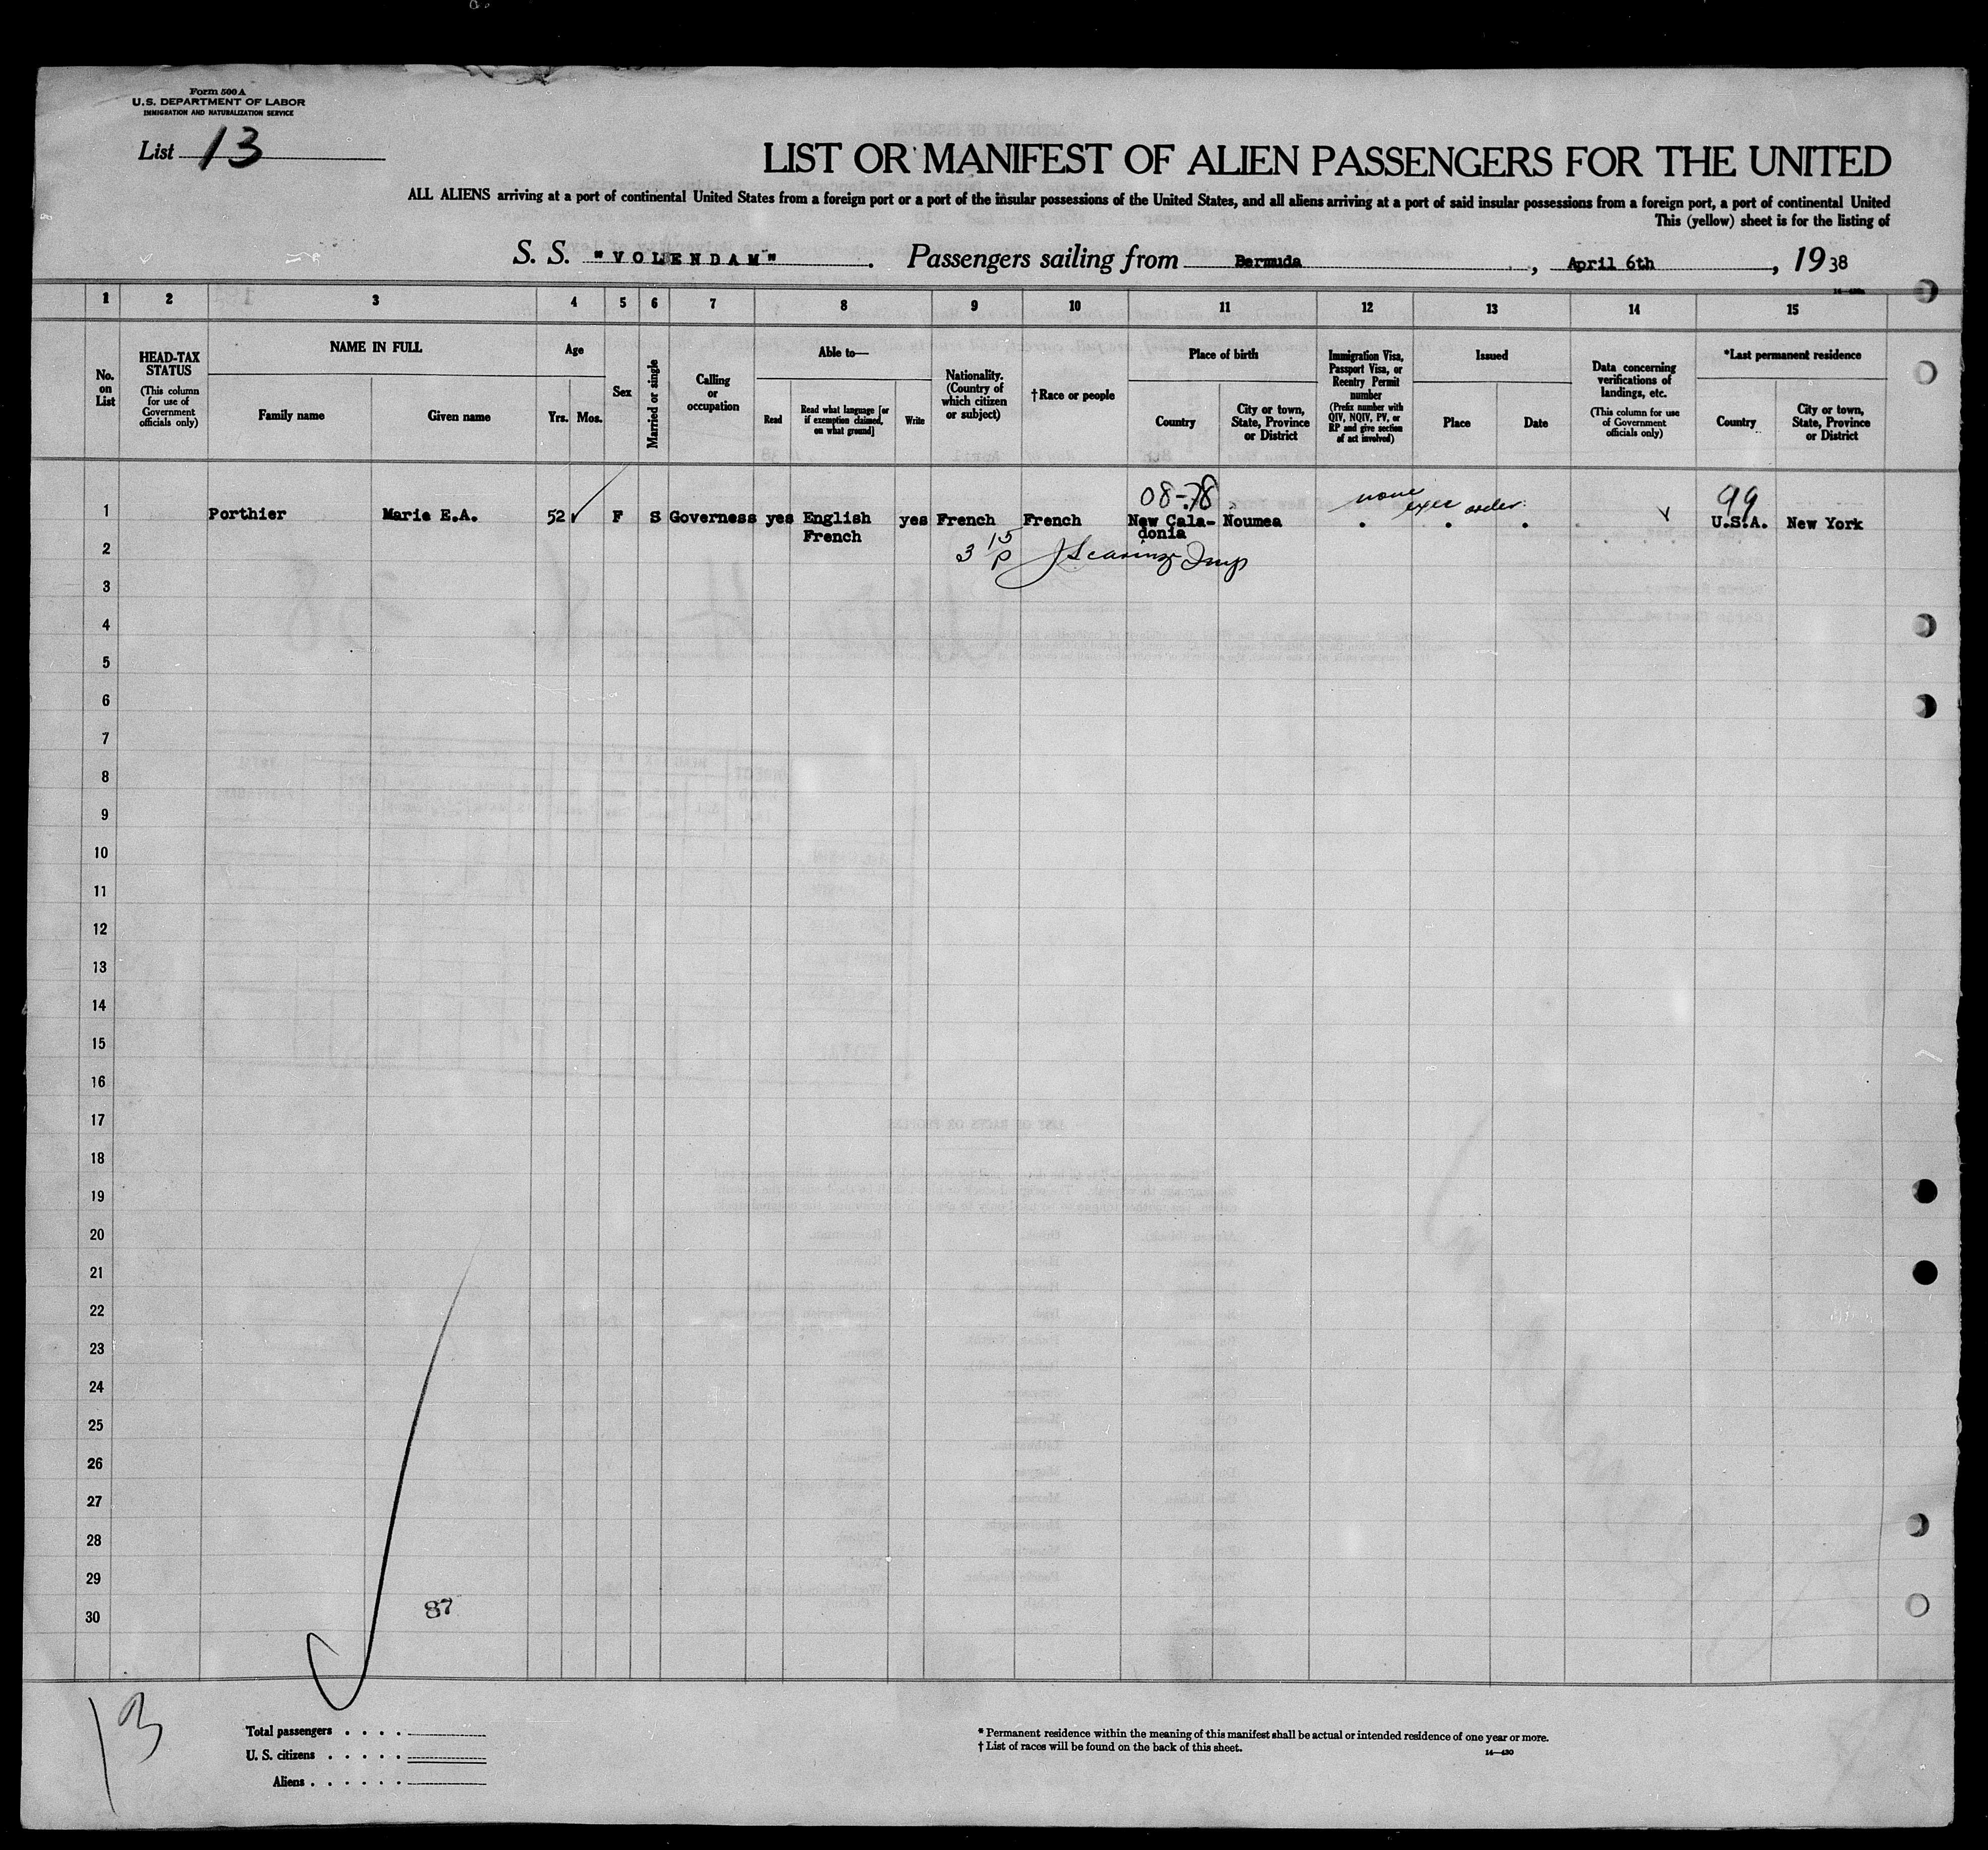 Form 500 A
U.S. DEPARTMENT OF LABOR
IMMIGRATION AND NATURALIZATION SERVICE
List 13
LIST OR MANIFEST OF ALIEN PASSENGERS FOR THE UNITED
ALL ALIENS arriving at a port of continental United States from a foreign port or a port of the insular possessions of the United States, and all aliens arriving at a port of said insular possessions from a foreign port, a port of continental United
This (yellow) sheet is for the listing of
S. S. "VOLENDAM". Passengers sailing from Bermuda, April 6th, 19 38
1 2 3 4 5 6 7 8 9 10 11 12 13 14 15
No. on List
HEAD-TAX STATUS
(This column for use of Government officials only)
NAME IN FULL
Family name Given name
Age
Yrs. Mos.
Sex
Married or single
Calling or occupation
Able to—
Read
Read what language [or if exemption claimed, on what ground]
Write
Nationality. (Country of which citizen or subject)
†Race or people
Place of birth
Country
City or town, State, Province or District
Immigration Visa, Passport Visa, or Reentry Permit number
(Prefix number with QIV, NQIV, PV, or RP and give section of act involved)
Issued
Place Date
Data concerning verifications of landings, etc.
(This column for use of Government officials only)
*Last permanent residence
Country
City or town, State, Province or District
08-78 none exec order 99
1 Porthier Marie E.A. 52 F S Governess yes English yes French French New Cala- Noumea U.S.A. New York
French donia
2
3 15 p
3
4
5
6
7
8
9
10
11
12
13
14
15
16
17
18
19
20
21
22
23
24
25
26
27
28
29
30
87
13
Total passengers . . . .
U. S. citizens . . . . .
Aliens . . . . . .
* Permanent residence within the meaning of this manifest shall be actual or intended residence of one year or more.
† List of races will be found on the back of this sheet.
14—430